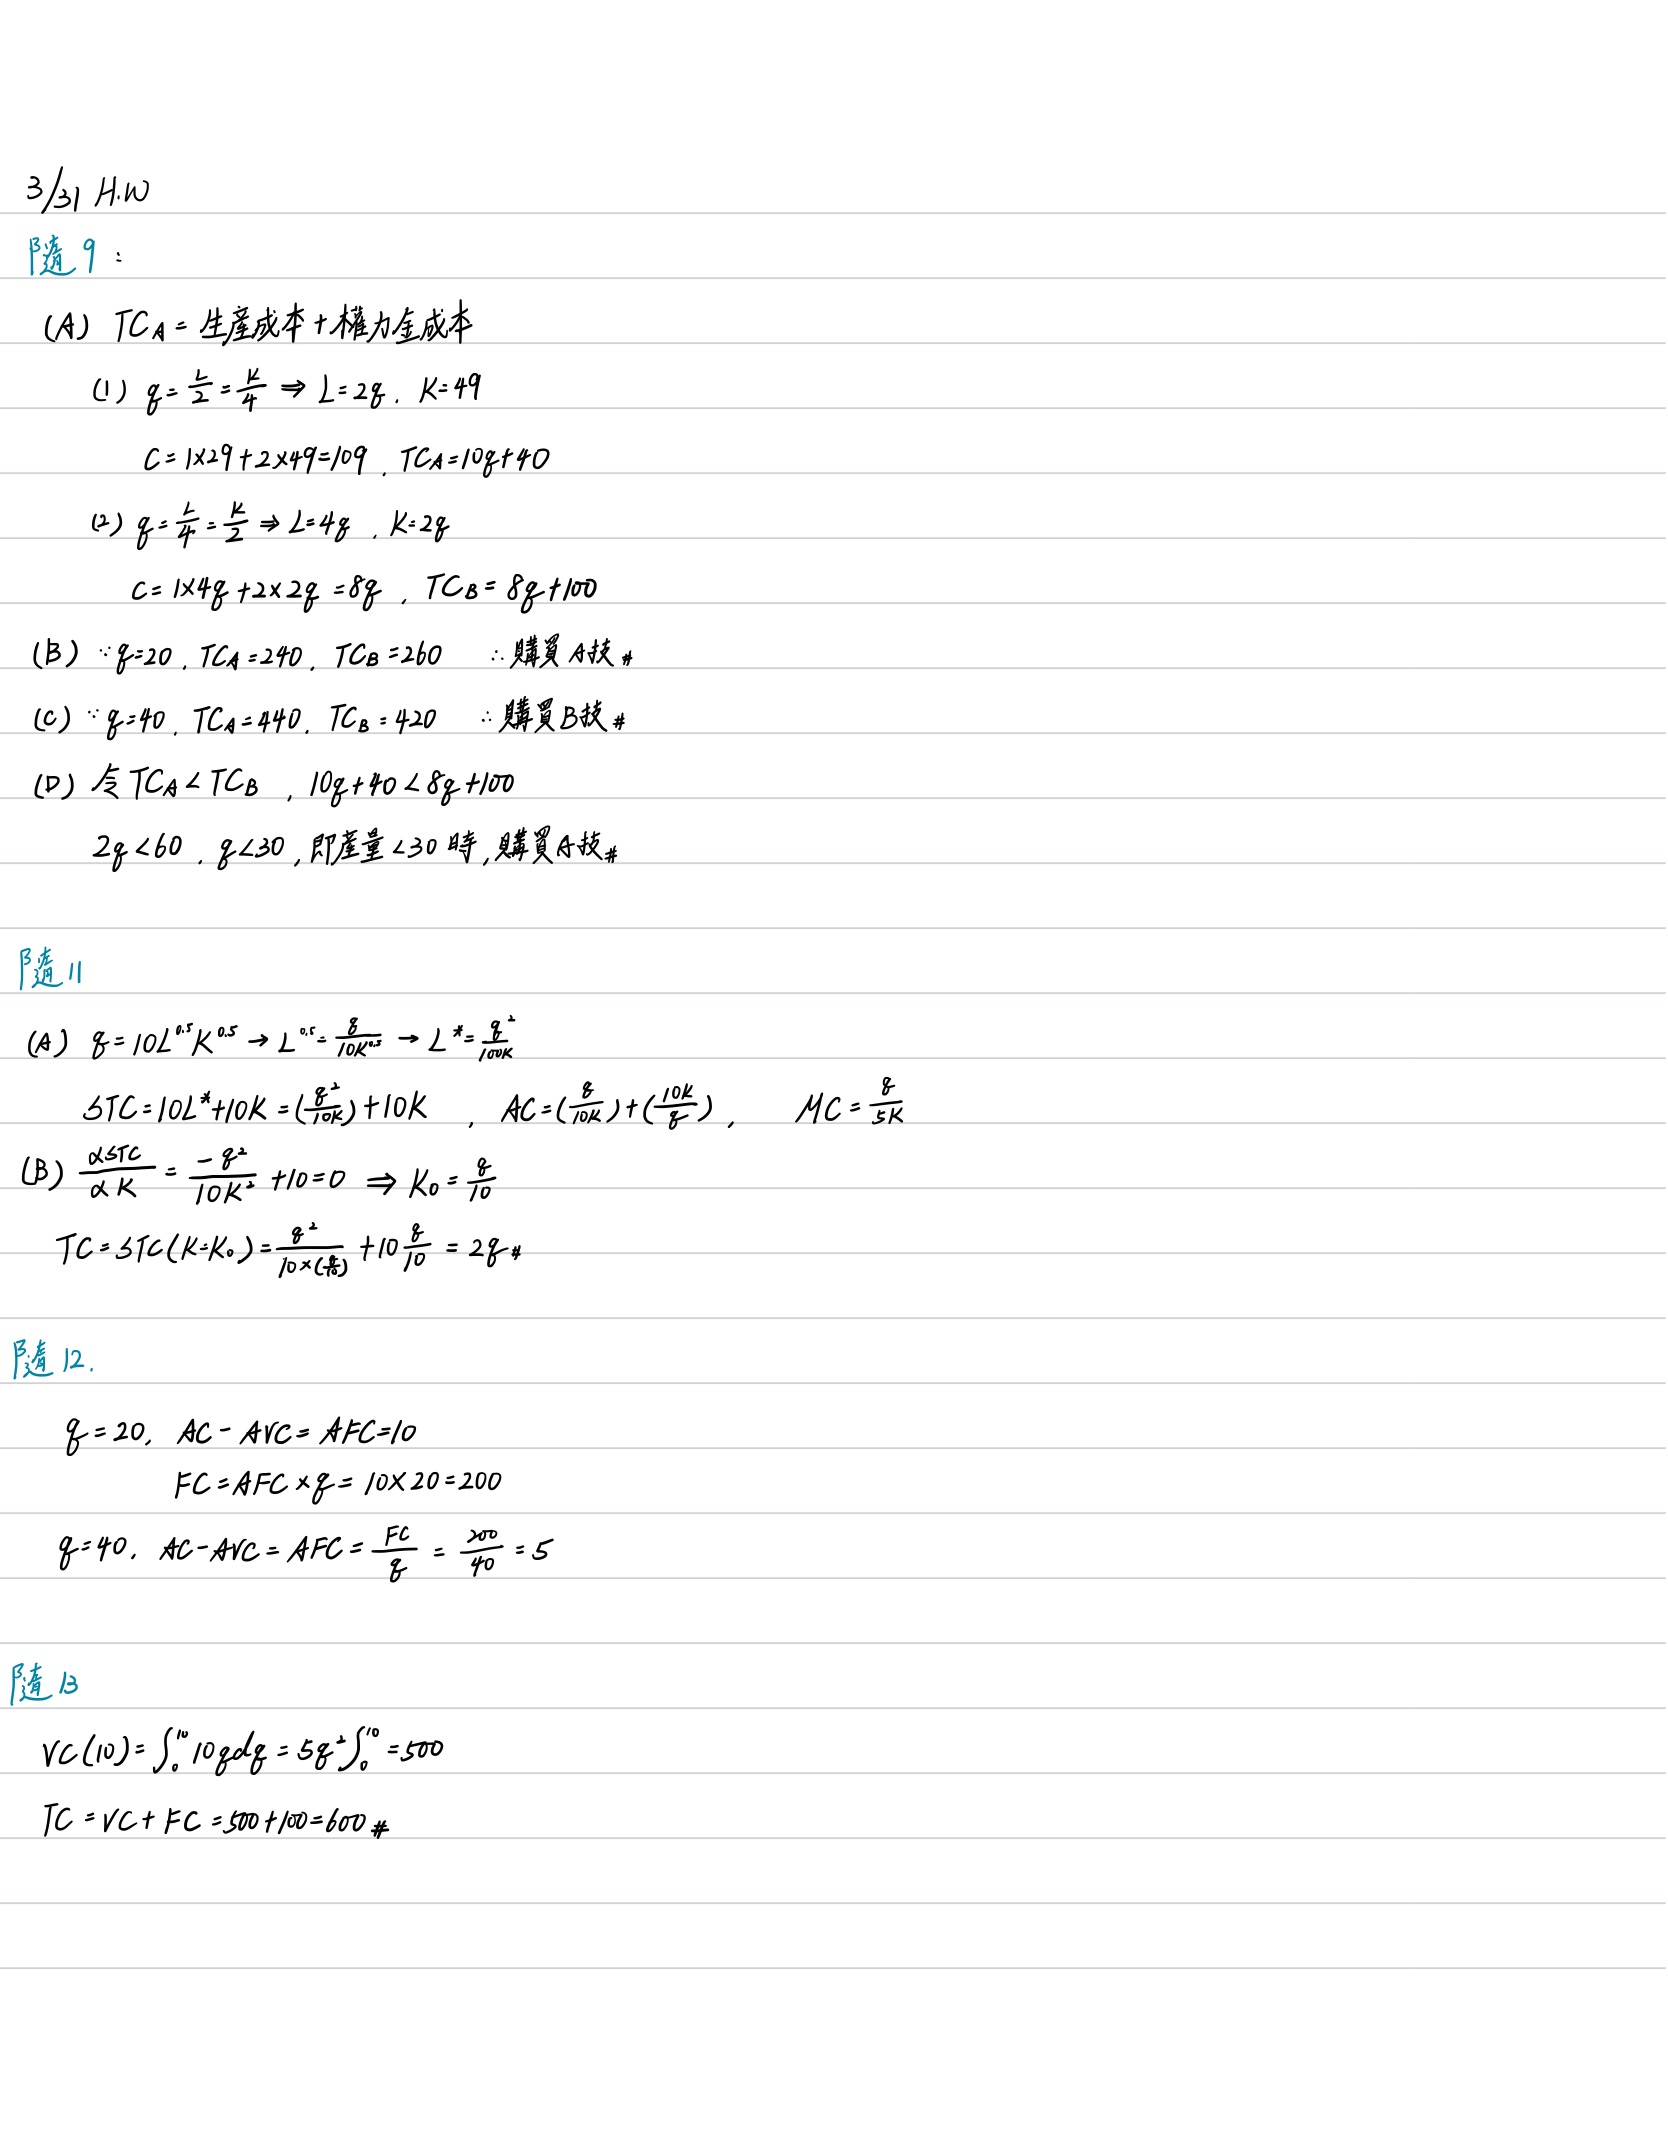 3/31 H.W
隨9：
(A) TCA = 生產成本+權力金成本
(1) q = L/2 = K/4 ⇒ L=2q, K=49
C=1×29+2×49=109, TCA=10q+40
(2) q = L/4 = K/2 ⇒ L=4q, K=2q
C=1×4q+2×2q=8q, TCB=8q+100
(B) ∵q=20, TCA=240, TCB=260 ∴購買A技#
(C) ∵q=40, TCA=440, TCB=420 ∴購買B技#
(D) 令TCA<TCB, 10q+40<8q+100
2q<60, q<30, 即產量<30時, 購買A技#
隨11
(A) q=10L^0.5K^0.5 → L^0.5=q/10K^0.5 → L*=q²/100K
STC=10L*+10K=(q²/10K)+10K, AC=(q/10K)+(10K/q), MC=q/5K
(B) αSTC/αK = -q²/10K² +10=0 ⇒ K0=q/10
TC=STC(K=K0)=q²/10×(q/10) +10 q/10 = 2q#
隨12.
q=20, AC-AVC=AFC=10
FC=AFC×q=10×20=200
q=40, AC-AVC=AFC=FC/q=200/40=5
隨13
VC(10)=∫₀¹⁰10qdq=5q²∫₀¹⁰=500
TC=VC+FC=500+100=600#